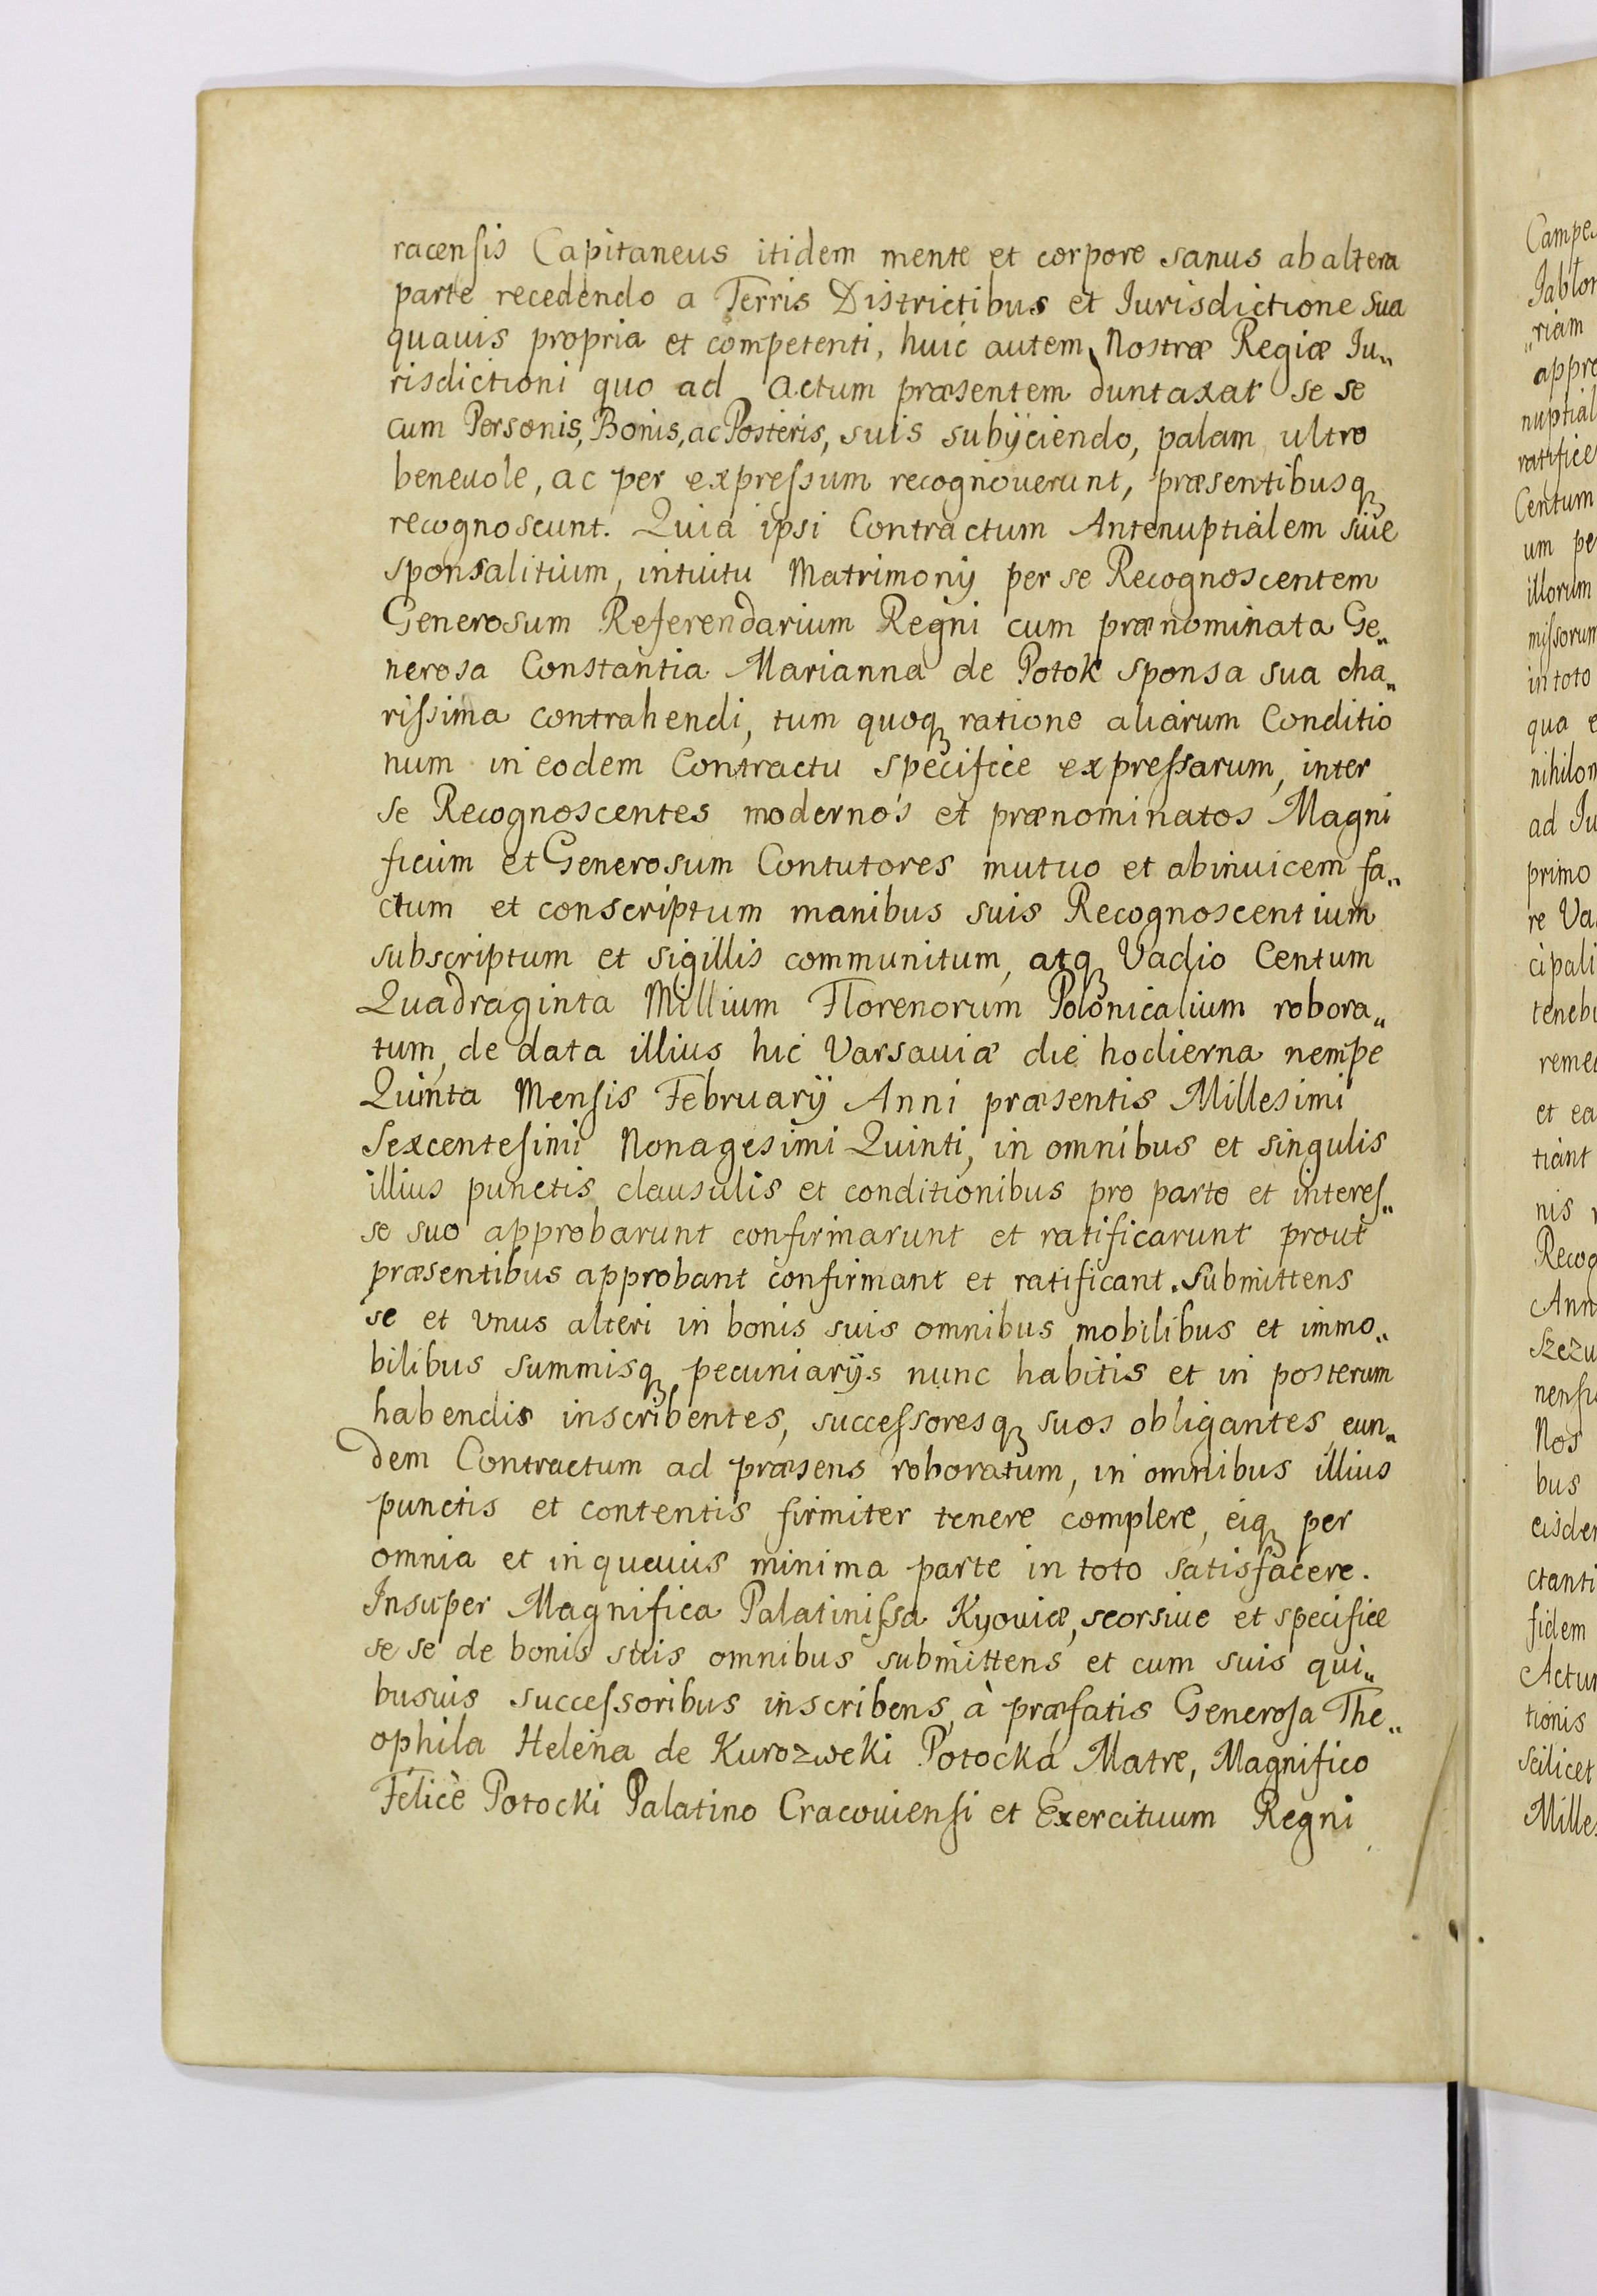 racensis Capitaneus itidem mente et corpore sanus ab altera
parte recedendo a Terris Districtibus et Iurisdictione sua
quauis propria et competenti, huic autem Nostræ Regiæ Iu„
risdictioni quo ad actum præsentem duntaxat se se
cum Personis, Bonis, ac Posteris, suis subijciendo, palam ultro
beneuole, ac per expressum recognouerunt, præsentibusq
recognoscunt. Quia ipsi Contractum Antenuptialem siue
sponsalitium, intuitu Matrimonij per se Recognoscentem
Generosum Referendarium Regni cum prænominata Ge„
nerosa Constantia Marianna de Potok sponsa sua cha„
rissima contrahendi, tum quoq ratione aliarum Conditio
num in eodem Contractu specifice expressarum, inter
se Recognoscentes modernos et prænominatos Magni
ficum et Generosum Contutores mutuo et abinuicem fa„
ctum et conscriptum manibus suis Recognoscentium
subscriptum et sigillis communitum, atq Vadio Centum
Quadraginta Millium Florenorum Polonicalium robora„
tum, de data illius hic Varsauiæ die hodierna nempe
Quinta Mensis Februarij Anni præsentis Millesimi
Sexcentesimi Nonagesimi Quinti, in omnibus et singulis
illius punctis, clausulis et conditionibus pro parte et interes„
se suo approbarunt confirmarunt et ratificarunt prout
præsentibus approbant confirmant et ratificant. Submittens
se et vnus alteri in bonis suis omnibus mobilibus et immo„
bilibus summisq pecuniarijs nunc habitis et in posterum
habendis inscribentes, successoresq suos obligantes eun„
dem Contractum ad præsens roboratum, in omnibus illius
punctis et contentis firmiter tenere complere, eiq per
omnia et in quauis minima parte in toto satisfacere.
Insuper Magnifica Palatinissa Kyouiæ, seorsiue et specifice
se se de bonis suis omnibus submittens et cum suis qui„
busuis successoribus inscribens, à præfatis Generosa The„
ophila Helena de Kurozweki Potocka Matre, Magnifico
Felice Potocki Palatino Cracouiensi et Exercituum Regni
riam
nuptial
Centum
um
illorum
in toto
qua
ad Iu
primo
re
et ea
nis
Nos
bus
fidem
tionis
scilicet